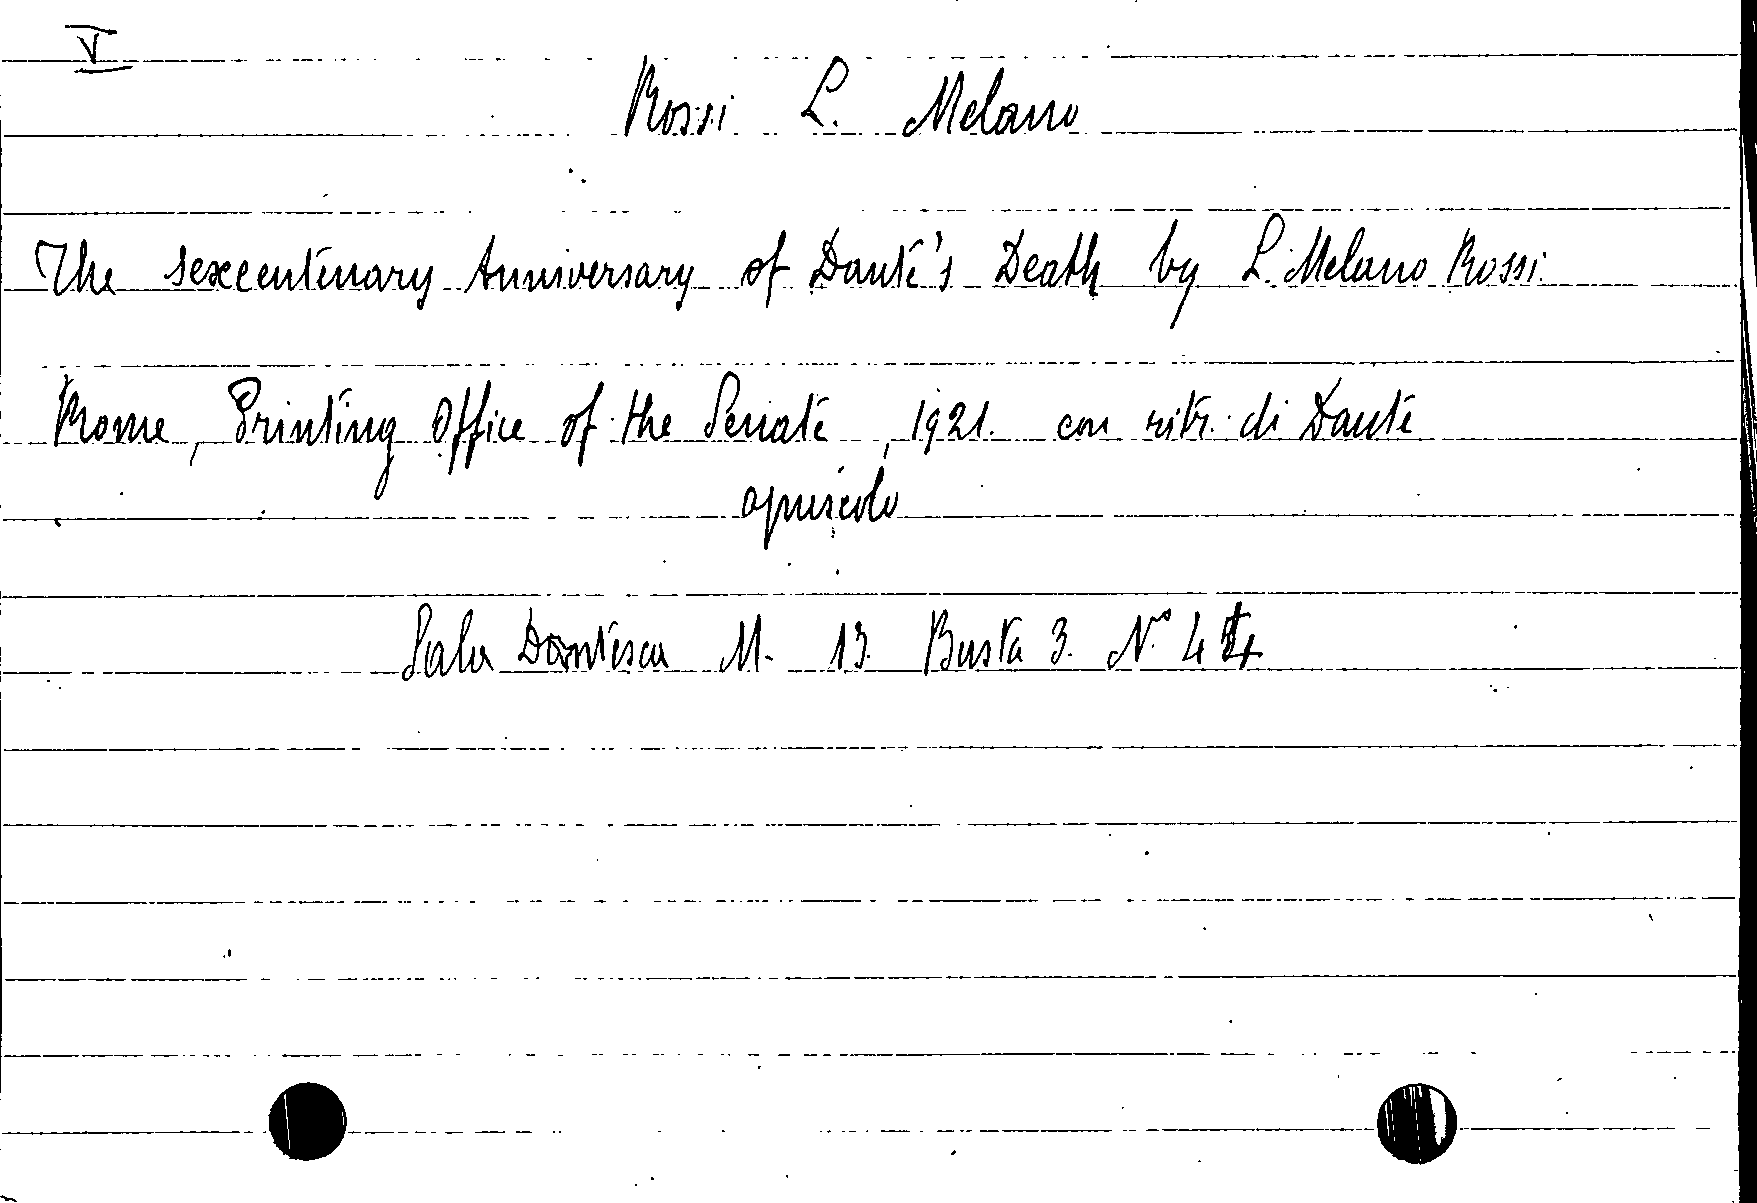 V
Rossi L. Melano
The sexcentenary Anniversary of Dante's Death by L. Melano Rossi.
Rome, Printing Office of the Senate, 1921. con ritr. di Dante
opuscolo
Sala Dantesca M. 13. Busta 3. N.° 44